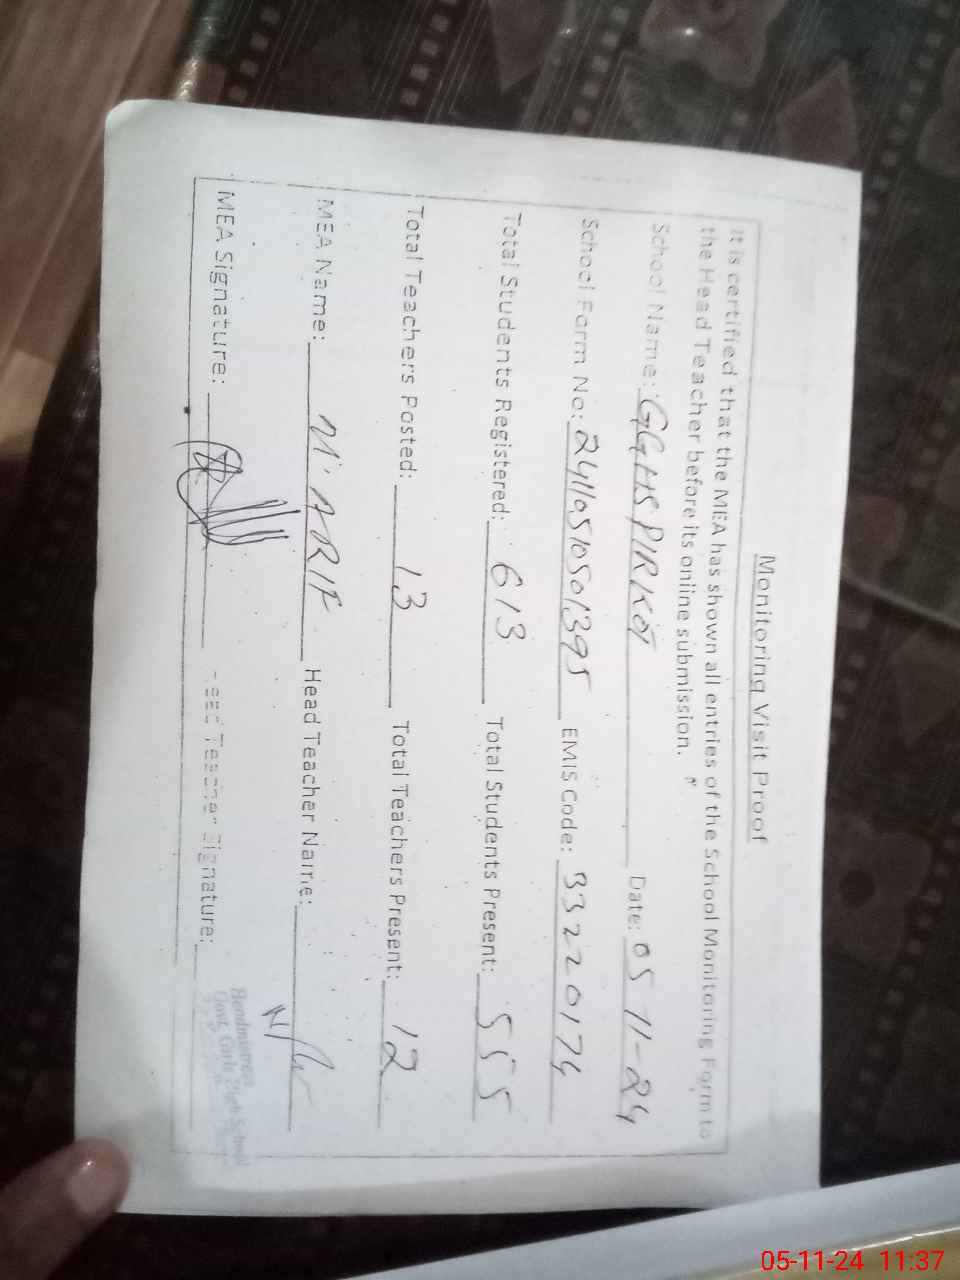 Monitoring Visit Proof
It is certified that the MEA has shown all entries of the School Monitoring Form to
the Head Teacher before its online submission.
School Name: GGHS PIRKOT Date: 05-11-24
School Form No: 24110510501395 EMIS Code: 33220174
Total Students Registered: 613 Total Students Present: 555
Total Teachers Posted: 13 Total Teachers Present: 12
MEA Name: M. ARIF Head Teacher Name:
MEA Signature: Head Teacher Signature:
Headmistress
Govt. Girls High School
05-11-24 11:37